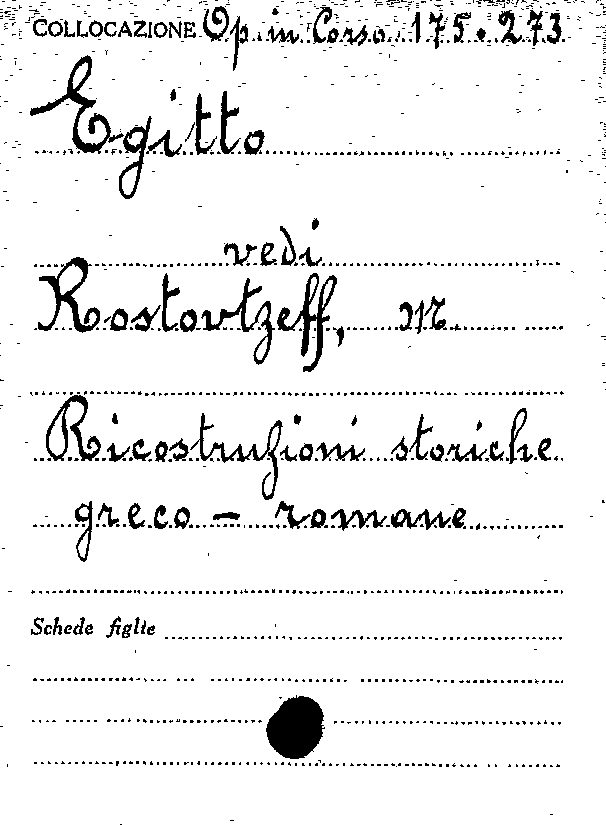 COLLOCAZIONE Op. in Corso 175.273
Egitto
vedi
Rostovtzeff, M.
Ricostruzioni storiche
greco - romane.
Schede figlie